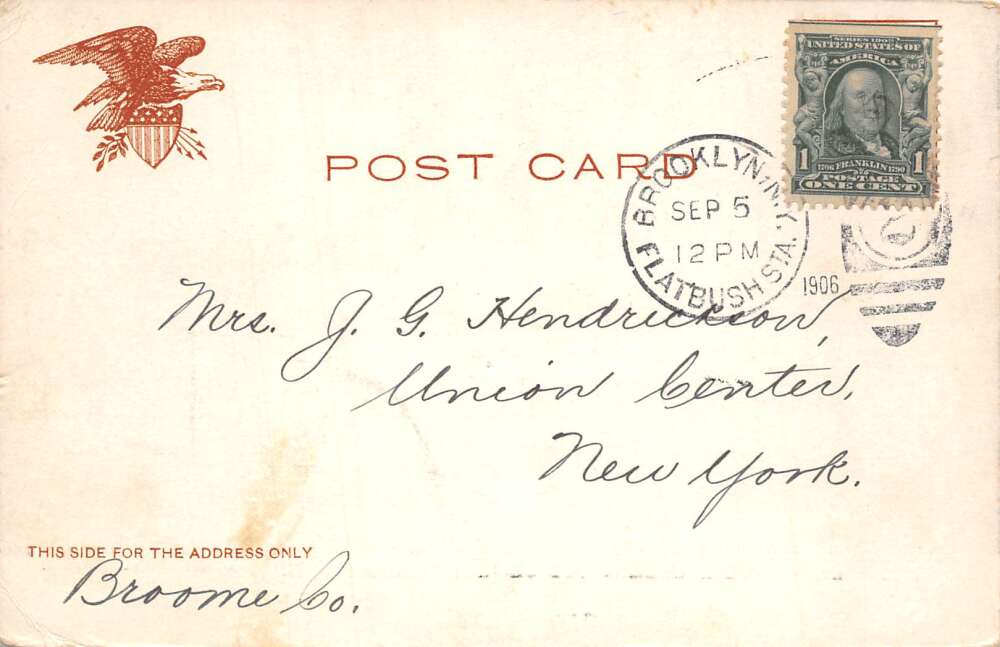 POST CARD
SERIES 1902
UNITED STATES OF
AMERICA
1 1706 FRANKLIN 1790 1
POSTAGE
ONE CENT
BROOKLYN, N.Y.
SEP 5
12 PM
FLATBUSH STA.
1906
Mrs. J. G. Hendrickson,
Union Center,
New York.
THIS SIDE FOR THE ADDRESS ONLY
Broome Co.